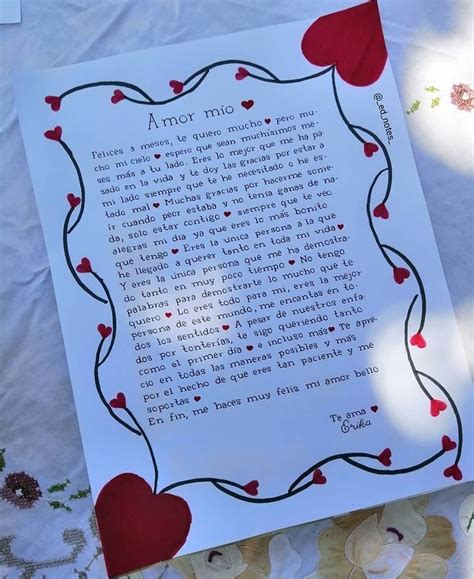 Amor mío ♥
Felices 3 meses, te quiero mucho ♥ pero mu-
cho mi cielo ♥ espero que sean muchísimos me-
ses más a tu lado. Eres lo mejor que me ha pa-
sado en la vida y te doy las gracias por estar a
mi lado siempre que te he necesitado o he es-
tado mal ♥ Muchas gracias por hacerme some-
ír cuando peor estaba y no tenía ganas de na-
da, solo estar contigo ♥ siempre que te veo
alegras mi día ya que eres lo más bonito
que tengo ♥ Eres la única persona a la que
he llegado a querer tanto en toda mi vida ♥
Y eres la única persona que me ha demostra-
do tanto en muy poco tiempo ♥ No tengo
palabras para demostrarte lo mucho que te
quiero ♥ Lo eres todo para mi, eres la mejor
persona de este mundo, me encantas en to-
dos los sentidos ♥ A pesar de nuestros enfa-
dos por tonterías, te sigo queriendo tanto
como el primer día ♥ e incluso más ♥ Te apre-
cio en todas las maneras posibles y más
por el hecho de que eres tan paciente y me
soportas ♥
En fin, me haces muy feliz mi amor bello
Te ama ♥
Erika
@_ed_notes_